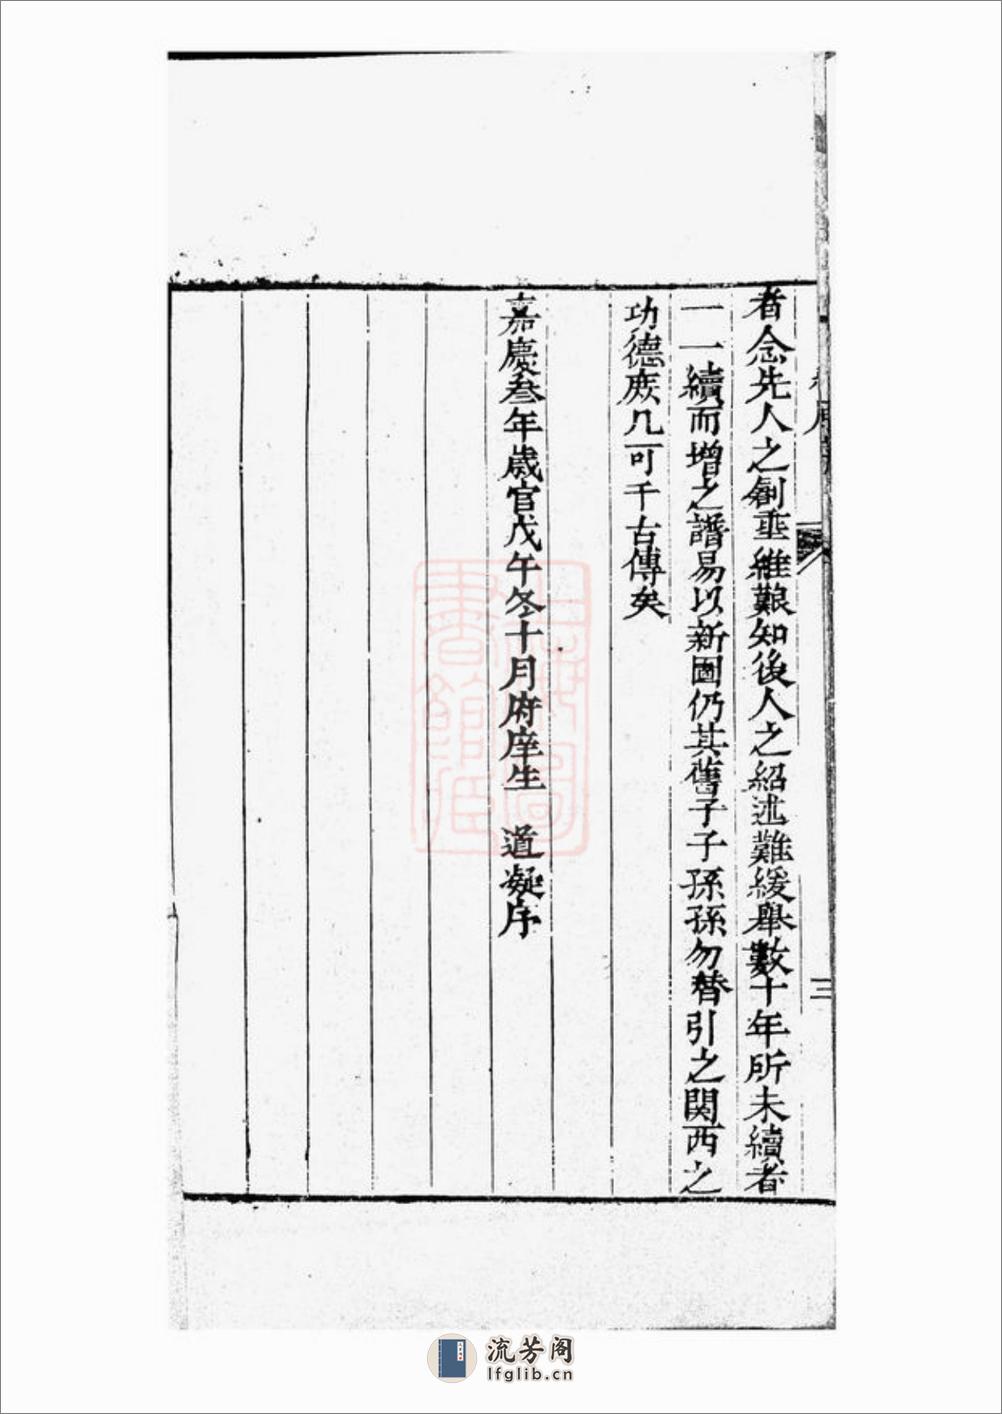 者念先人之創垂維艱知後人之紹述難緩舉數十年所未續者
一一續而增之譜易以新圖仍其舊子子孫孫勿替引之関西之
功德庻几可千古傳矣
嘉慶叁年歲官戊午冬十月府庠生 道凝序
三
上海圖書館藏
流芳阁
lfglib.cn